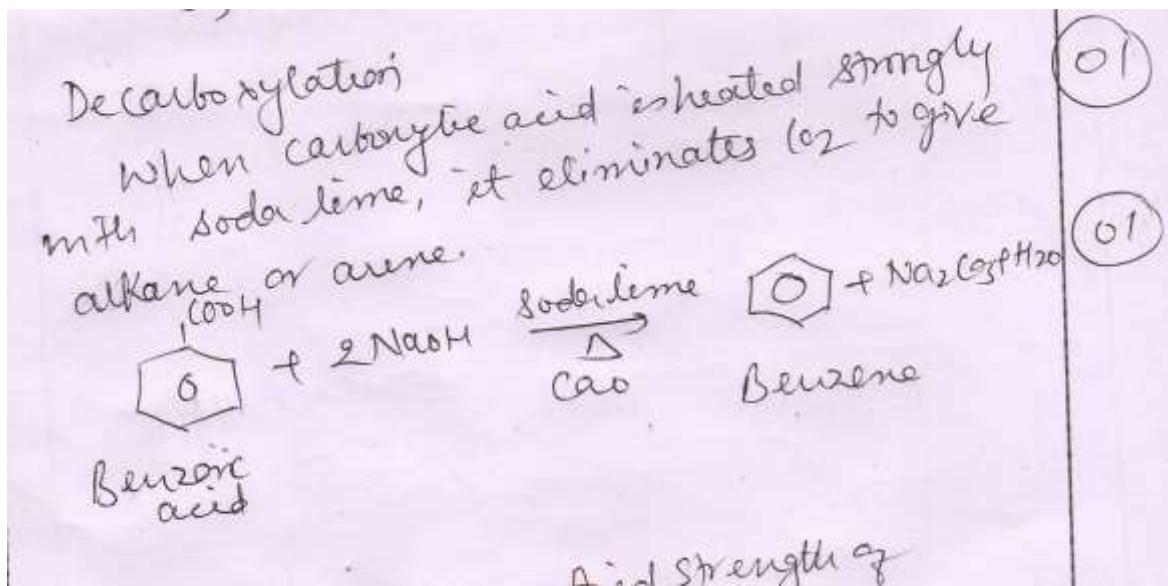 Decarboxylation
When carboxylic acid is heated strongly 01
with soda lime, it eliminates CO2 to give
alkane or arene. 01
COOH
+ 2 NaOH soda lime + Na2CO3 + H2O
Δ
CaO
Benzene
Benzoic
acid
Acid Strength of